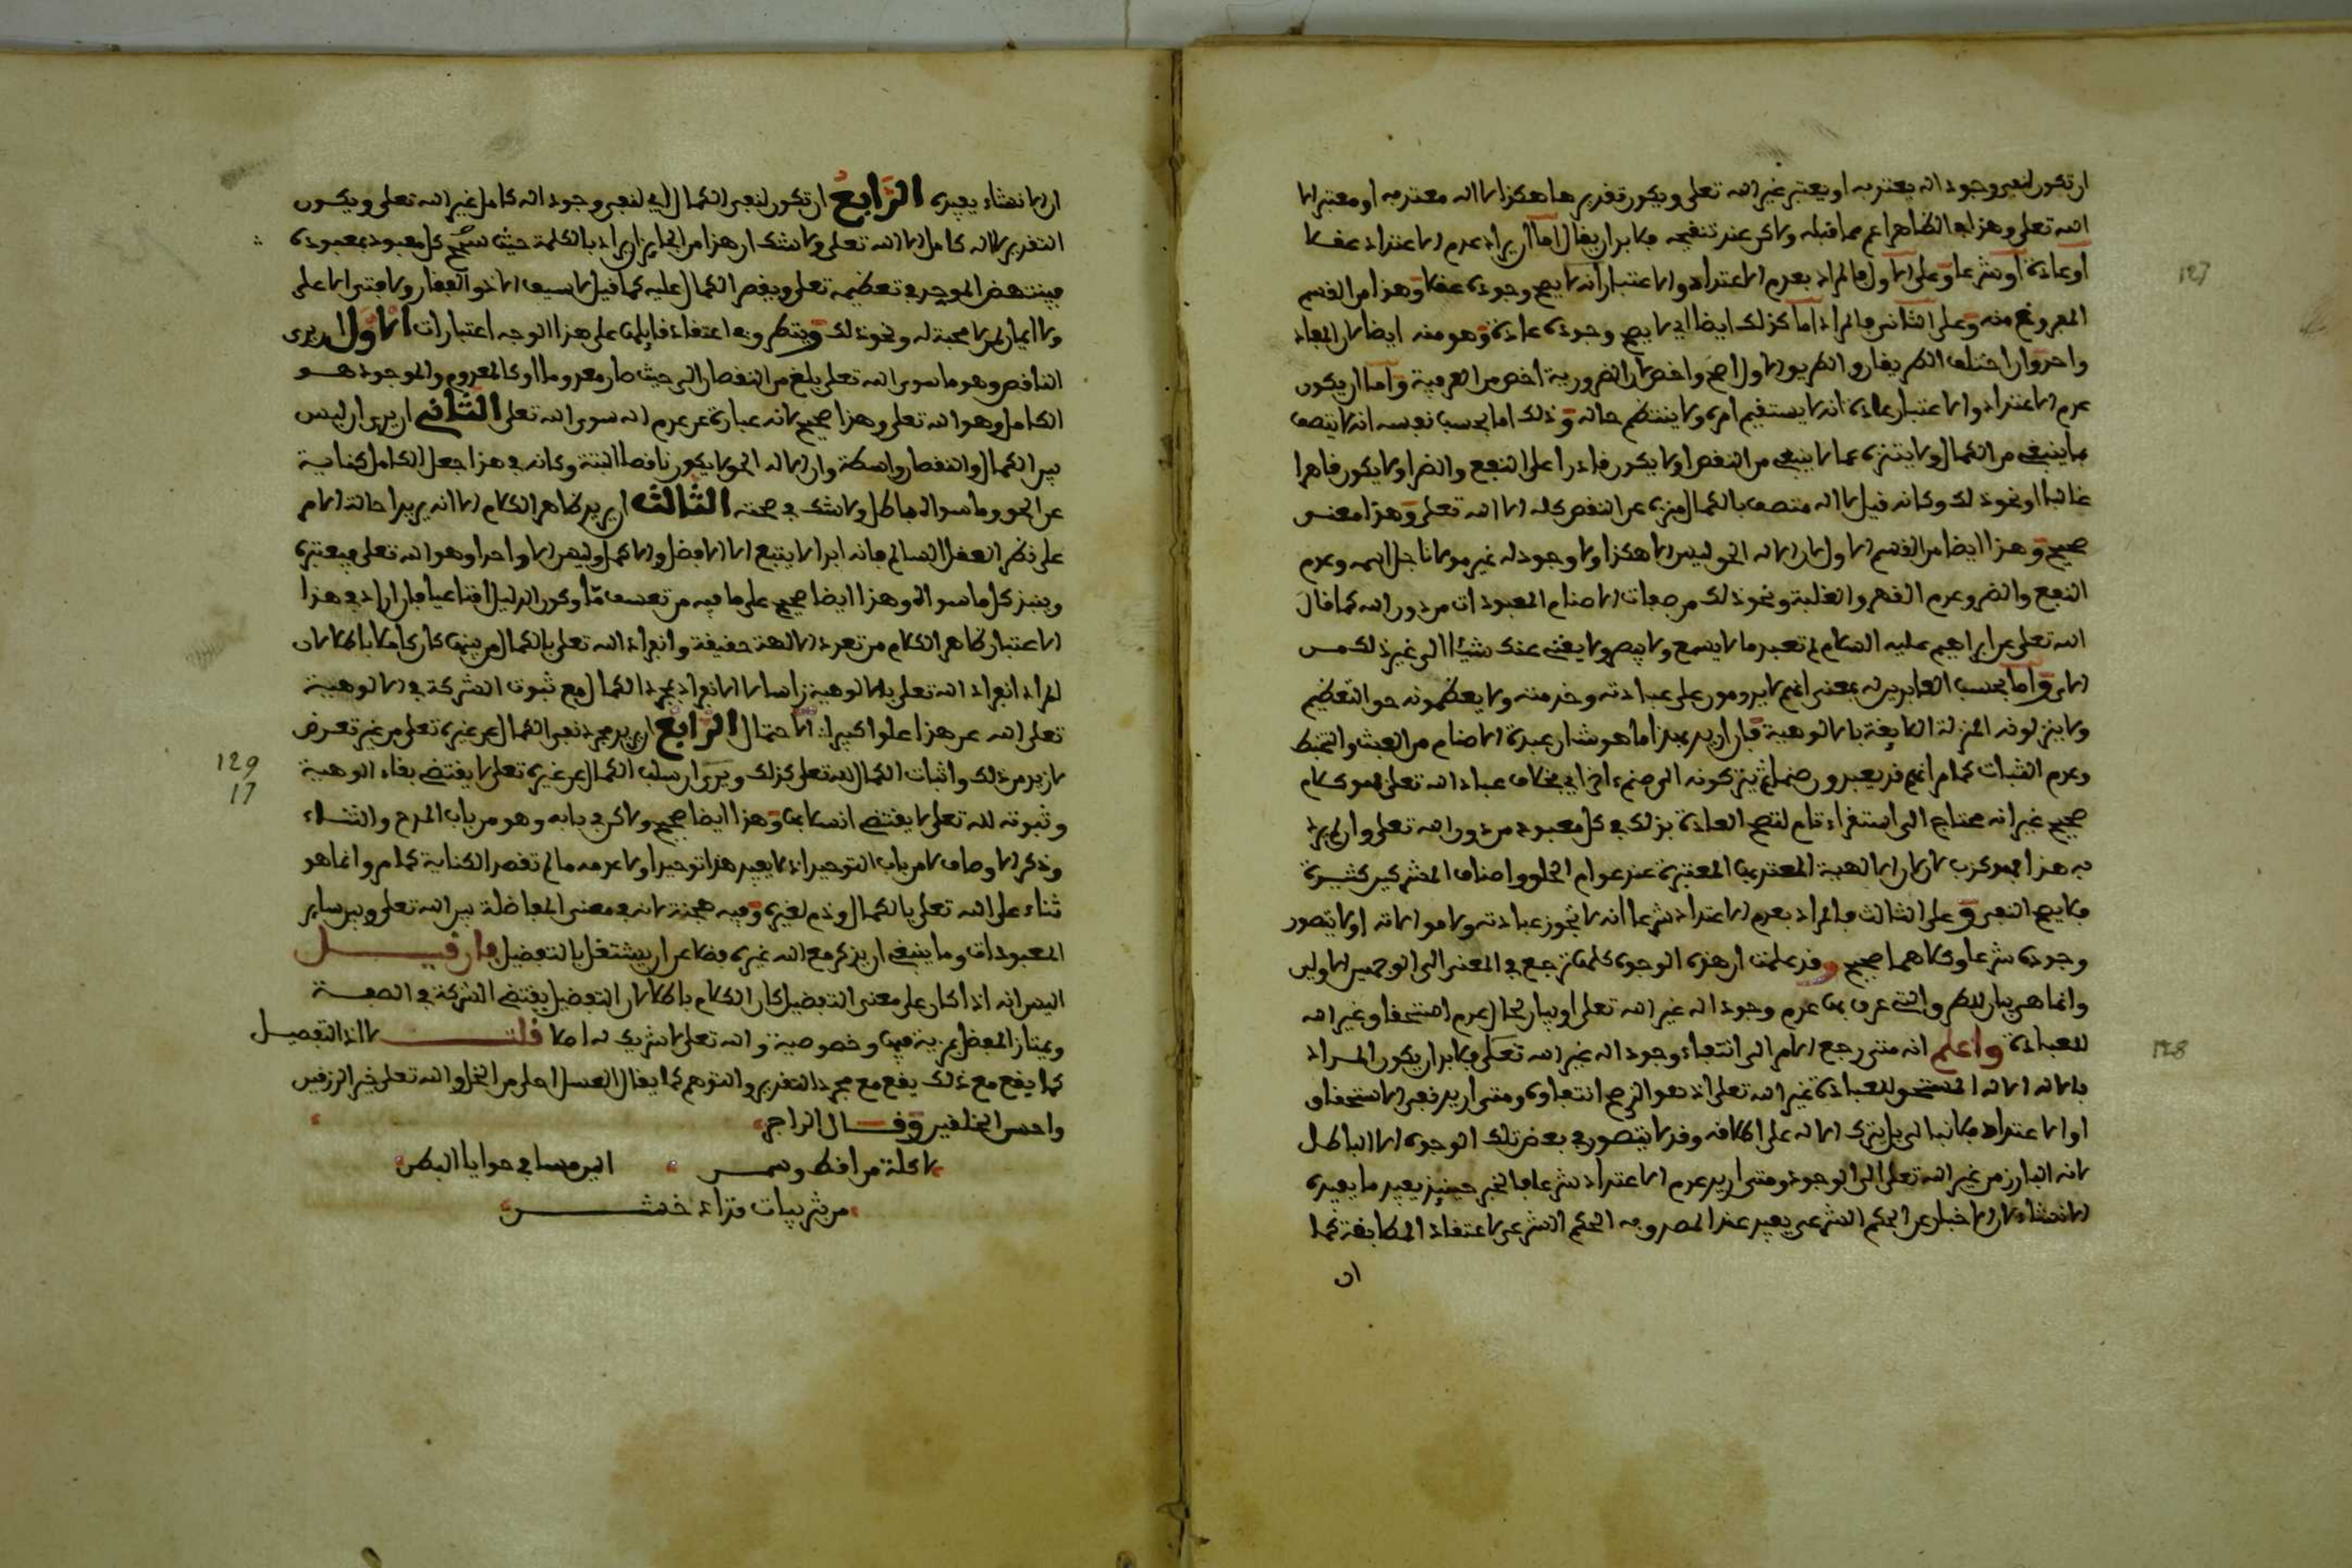 ان تكون لنفي وجود اله يعتد به او يعتبر غير الله تعلى ويكون تقديرها هكذا لا اله معتد به او معتبر الا
الله تعلى وهذا في الظاهر اعم مما قبله ولاكن عند تنقيحه فلا بد ان يقال اما ان يراد عدم الاعتداد عقلا
او عادة او شرعا وعلى الاول فالمراد بعدم الاعتداد والاعتبار انه لا يصح وجوده عقلا وهذا من القسم
المفروغ منه وعلى الثاني فالمراد اما كذلك ايضا اي لا يصح وجوده عادة وهو منه ايضا لان المفاد
واحد وان اختلف الطريقان والطريق الاول اصح واخص لان الضرورية اخص من العرفية واما ان يكون
عدم الاعتداد والاعتبار عادة انه لا يستقيم امره ولا ينتظم حاله وذلك اما بحسب نفسه انه لا يتصف
بما ينبغي من الكمال ولا يتنزه عما لا ينبغي من النقص او لا يكون قادرا على النفع والضر او لا يكون قاهرا
غالبا او نحو ذلك وكانه قيل لا اله متصف بالكمال منزه عن النقص كله الا الله تعلى وهذا معنى
صحيح وهذا ايضا من القسم الاول لان الاله الحق ليس الا هكذا ولا وجود له غير مولانا جل اسمه وعدم
النفع والضر وعدم القهر والغلبة ونحو ذلك من صفات الاصنام المعبودات من دون الله كما قال
الله تعلى عن ابراهيم عليه السلام لم تعبد ما لا يسمع ولا يبصر ولا يغني عنك شيئا الى غير ذلك من
الاي واما بحسب العابدين له بمعنى انهم لا يدومون على عبادته وخدمته ولا يعظمونه حق التعظيم
ولا ينزلونه المنزلة اللايقة بالالوهية فان اريد بهذا ما هو شان عبدة الاصنام من العبث والتخبط
وعدم الثبات كما مر انهم قد يعبدون صنما ثم يتركونه الى صنم اخر اي بخلاف عباد الله تعلى فهو كلام
صحيح غير انه محتاج الى استقراء تام لتصح العادة بذلك في كل معبود من دون الله تعلى وان لم يرد
به هذا فهو كذب لان الالهية المعتد بها المعتبرة عند عوام الخلق واصناف المشركين كثيرة
فلا يصح النفي وعلى الثالث فالمراد بعدم الاعتداد شرعا انه لا تجوز عبادته ولا موالاته او لا يتصور
وجوده شرعا وكلاهما صحيح وقد علمت ان هذه الوجوه كلها ترجع في المعنى الى الوجهين الاولين
وانما هي بيان للطرق والتي عرف بها عدم وجود اله غير الله تعلى او بيان لحال عدم استحقاق غير الله
للعبادة واعلم انه متى رجع الامر الى انتفاء وجود اله غير الله تعلى فلا بد ان يكون المراد
بالاله الاله المستحق للعبادة غير الله تعلى اذ هو الذي صح انتفاؤه ومتى اريد نفي الاستحقاق
او الاعتداد فلا نبالي بان يترك الاله على اطلاقه وقد لا يتصور في بعض تلك الوجوه الا الباطل
لانه البارز من غير الله تعلى الى الوجود ومتى اريد عدم الاعتداد شرعا فالخبر حينيذ يفيد ما يفيده
الانشاء لان الاخبار عن الحكم الشرعي يفيد عند المصدق به الحكم الشرعي لاعتقاد المطابقة كما
ان
ان الانشاء يفيده الرابع ان تكون لنفي الكمال اي لنفي وجود اله كامل غير الله تعلى ويكون
التقدير لا اله كامل الا الله تعلى ولا شك ان هذا من الجايز ان يراد بالكلمة حيث كل معبود بمعبوده
فينتهض الموحد في تعظيمه تعلى وبقصر الكمال عليه كما قيل لا سيف الا ذو الفقار ولا فتى الا على
ولا ايمان لمن لا محبة له ونحو ذلك وينطوي في اعتقاد قايلها على هذا الوجه اعتبارات الاول ان يرى
الناقص وهو ما سوى الله تعلى بلغ من النقصان الى حيث صار معدوما او كالمعدوم والموجود هو
الكامل وهو الله تعلى وهذا صحيح لانه عبارة عن عدم اله سوى الله تعلى الثاني ان يرى ان ليس
بين الكمال والنقصان واسطة وان الاله الحق لا يكون ناقصا البتة وكانه في هذا جعل الكامل كناية
عن الحق وما سواه باطل ولا شك في صحته الثالث ان يريد ظاهر الكلام الا انه يريد احالة الامر
على نظر العقل السالم فانه ابدا لا يتبع الا الافضل والاكمل وليس الا واحدا وهو الله تعلى فيعتبره
وينبذ كل ما سواه وهذا ايضا صحيح على ما فيه من تعسف ما وكون الدليل اقناعيا فان اراد في هذا
الاعتبار ظاهر الكلام من تعدد الالهة حقيقة وانفراد الله تعلى بالكمال من بينها كان كلاما باطلا لان
المراد انفراد الله تعلى بالالوهية راسا لا الانفراد بمجرد الكمال مع ثبوت الشركة في الالوهية
تعلى الله عن هذا علوا كبيرا الاحتمال الرابع ان يريد مجرد نفي الكمال عن غيره تعلى من غير تعرض
لازيد من ذلك واثبات الكمال لله تعلى كذلك ويرى ان سلب الكمال عن غيره تعلى لا يقتضي بقاء الوهية
وثبوته لله تعلى لا يقتضي انسلابها وهذا ايضا صحيح ولاكن في بابه وهو من باب المدح والثناء
وذكر الاوصاف لا من باب التوحيد اذ لا يفيد هذا توحيدا ولا عدمه ما لم تقصر الكناية كما مر وانما هو
ثناء على الله تعلى بالكمال وذم لغيره وفيه هجنة لانه في معنى المفاضلة بين الله تعلى وبين ساير
المعبودات وما ينبغي ان يذكر مع الله غيره فضلا عن ان يشتغل بالتفضيل فان قيل
اليس انه اذا كان على معنى التفضيل كان الكلام باطلا لان التفضيل يقتضي الشركة في الصفة
ويمتاز المفضل بمزية فيها وخصوصية والله تعلى لا شريك له اصلا قلت لا اذ التفضيل
كما يقع مع ذلك يقع مع مجرد التقدير والتوهم كما يقال العسل احلى من الخل والله تعلى خير الرزقين
واحسن الخلقين وقال الراجز
لاكلة من اقط وسمن الين مسا في حوايا البطن
من يثربيات قذاذ خشن
129
17
127
128